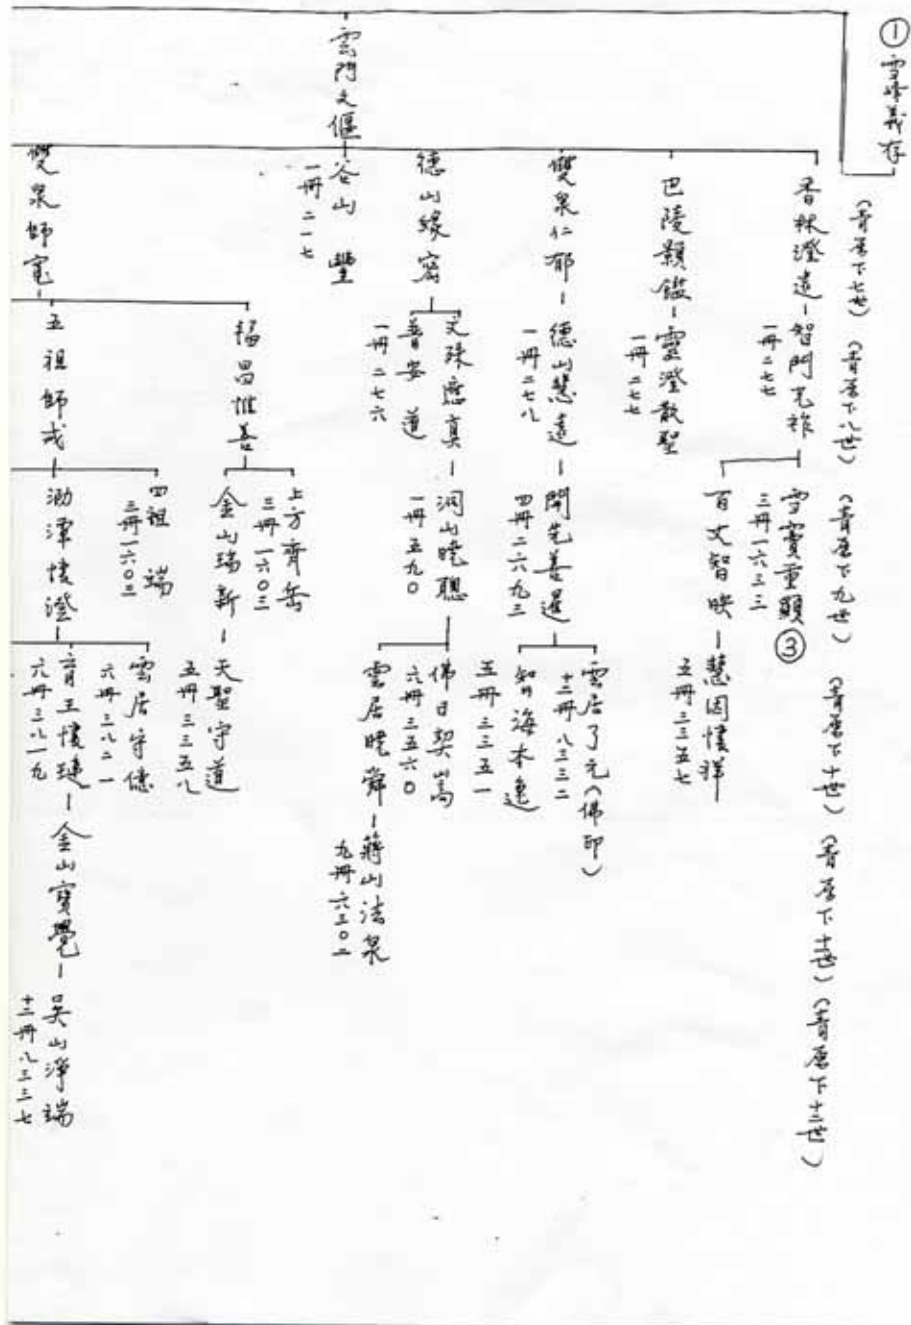 ①雪峰義存
(青原下七世)(青原下八世)(青原下九世)(青原下十世)(青原下十一世)(青原下十二世)
香林澄遠-智門光祚
一冊二七七
雪竇重顯③
三冊一六三三
百丈智映-慧因懷祥
五冊三三五七
巴陵顥鑑-靈澄散聖
一冊二七七
雙泉仁郁-德山慧遠-開先善暹
一冊二七八
四冊二六九三
雲居了元(佛印)
十二冊八三三二
智海本逸
五冊三三五一
德山緣密
文殊應真-洞山曉聰
普安 道
一冊二七六
一冊五九〇
佛日契嵩
六冊三五六〇
雲居曉舜-蔣山法泉
九冊六三〇二
雲門文偃
谷山 豐
一冊二一七
雙泉師寬
福昌惟善
上方齊岳
三冊一六〇三
金山瑞新-天聖守道
五冊三三五八
五祖師戒
四祖 端
三冊一六〇三
泐潭懷澄
雲居守億
六冊三八二一
育王懷璉-金山寶覺-吴山淨端
六冊三八一九
十二冊八三三七